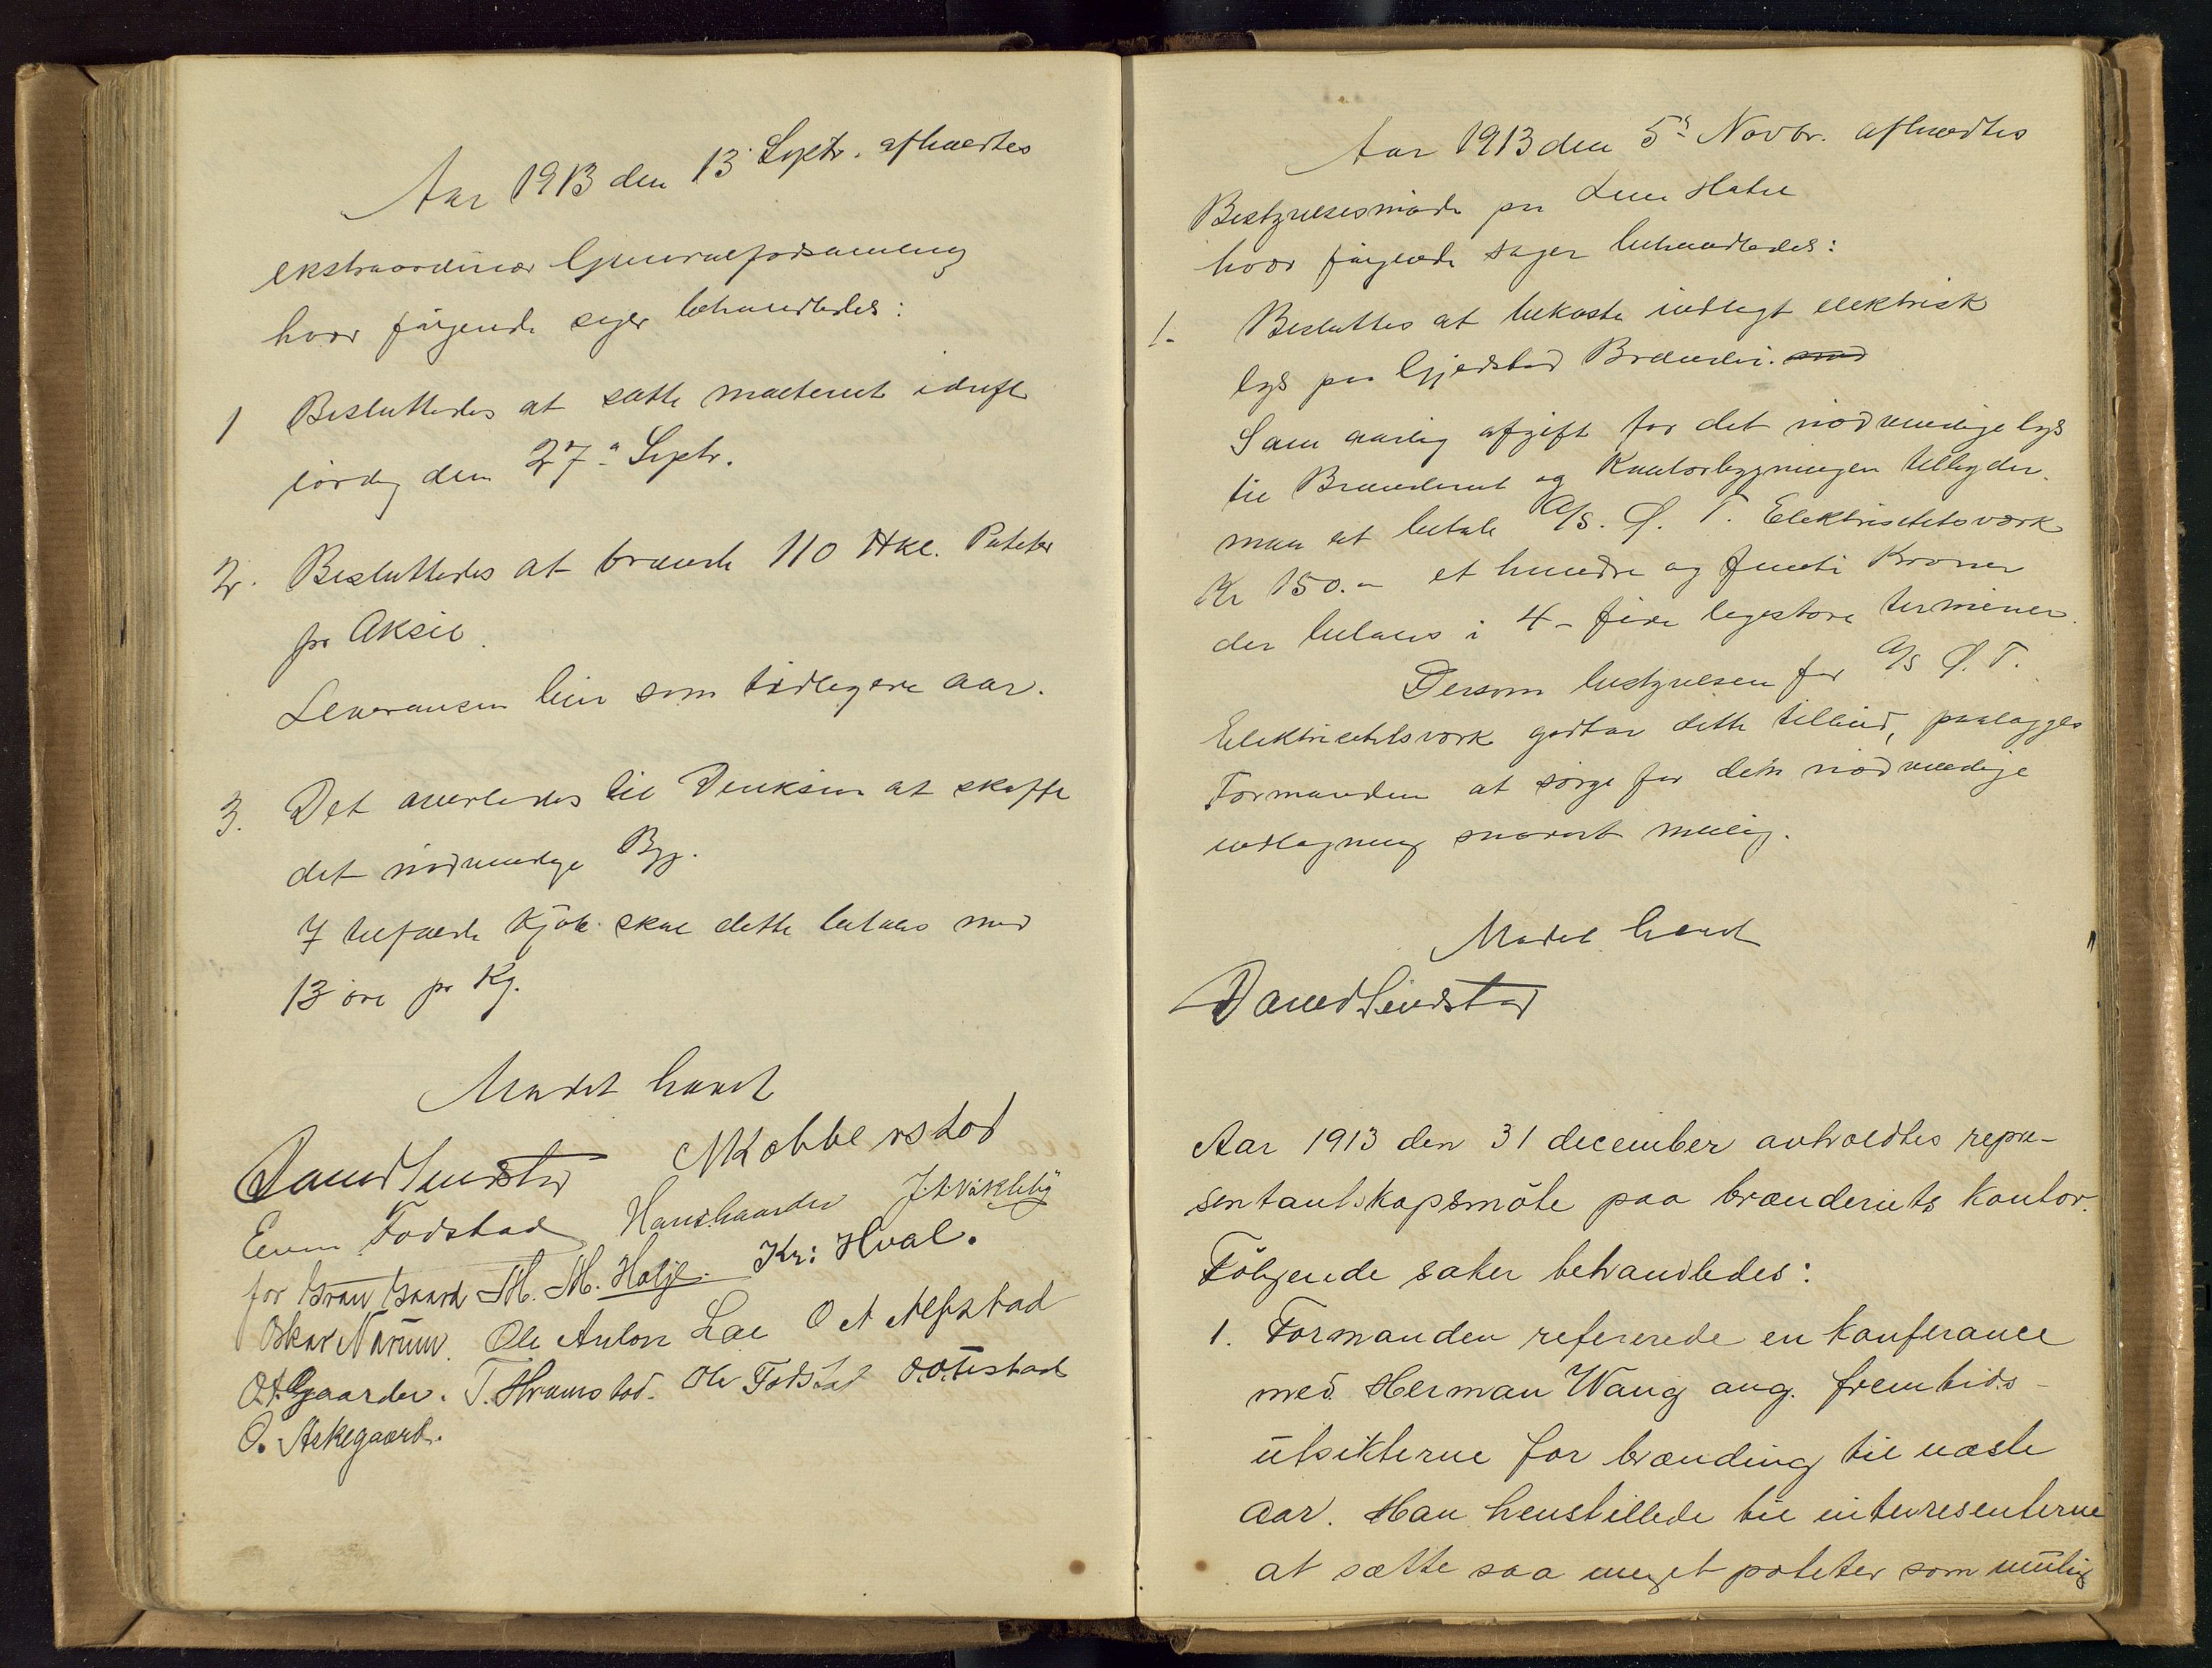 Aar 1913 den 13 Septr. afholdtes
ekstraordinær Generalforsamling
hvor følgende sager behandledes:
1 Besluttedes at sætte mæskeriet i drift
lørdag den 27de Septr.
2. Besluttedes at brænde 110 Hkl. Poteter
pr Aksie.
Leveransen blir som tidligere aar.
3. Det overlades til Direksion at skaffe
det nødvendige Byg.
I tilfælde Kjøb skal dette betales med
13 øre pr Kg.
Mødet hævet
N Kobberstad
Even Fodstad Hans Gaarder
for Gran Gaard M. M. Holje. Kr: Hval.
Oskar Narum. Ole Anton Lae O A Alfstad
O.A. Gjaarder. T. Hramstad. Ole Fodstad O.O. Tistad
O. Askegaard.
Aar 1913 den 5te Novbr. afholdtes
Bestyrelsesmøde paa Lena Hotel
hvor følgende sager behandledes:
1. Besluttes at bekoste indlagt elektrisk
lys paa Gjedstad Brænderi.
Som aarlig afgift for det nødvendige lys
til Brænderiet og Kontorbygningen tilbyder
man at betale A/S. Ø. T. Elektrisitetsværk
Kr 150.- et hundre og femti Kroner
der betales i 4 - fire ligestore terminer.
Dersom bestyrelsen for A/S Ø. T.
Elektrisitetsværk godtar dette tilbud, paalægges
Formanden at sørge for den nødvendige
indlægning snarest mulig.
Mødet hævet
Aar 1913 den 31 december avholdtes repræ-
sentantskapsmöte paa brænderiets kontor.
Fölgende saker behandledes:
1. Formanden refererede en konferance
med Herman Wang ang. fremtids-
utsikterne for brænding til næste
aar. Han henstillede til interesenterne
at sætte saa meget poteter som mulig